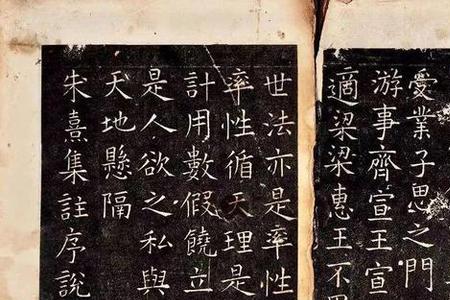 受業子思之門
游事齊宣王宣
適梁梁惠王不
世法亦是率性
率性循天理是
計用數假饒立
是人欲之私與
天地懸隔
朱熹集註序說